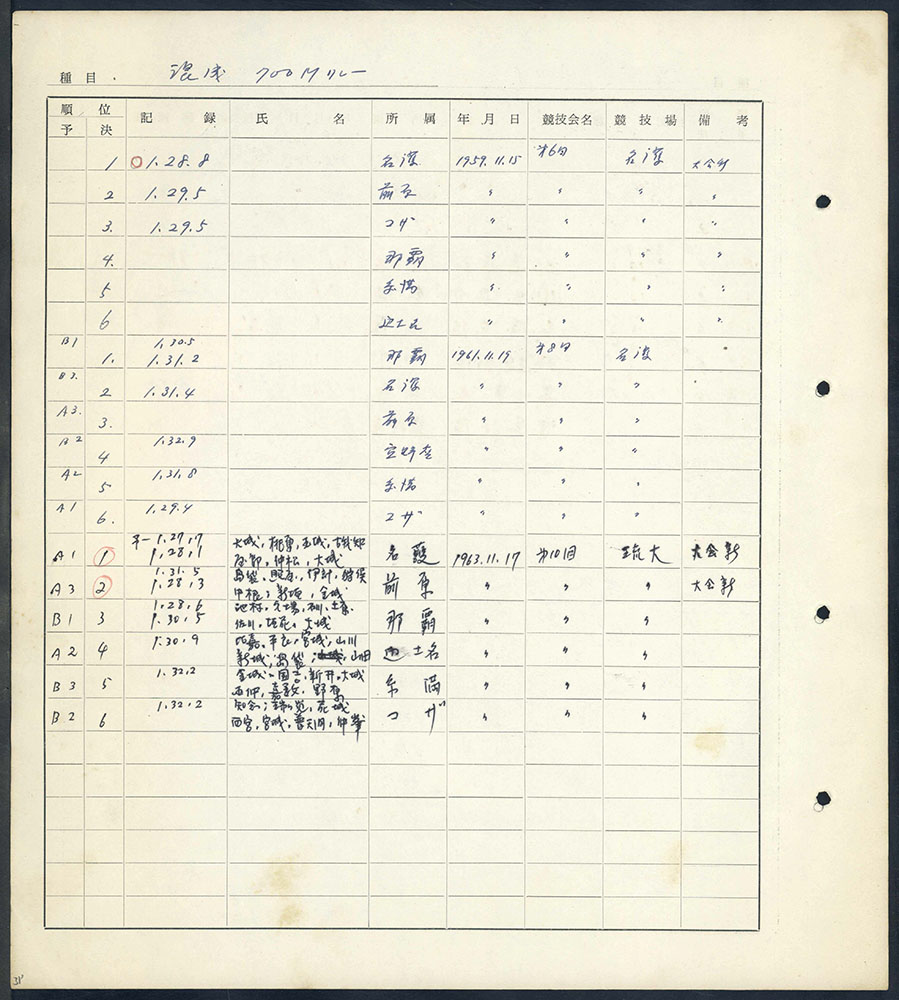 種目. 混成 700Mリレー
順位 記録 氏名 所属 年月日 競技会名 競技場 備考
予 決
1 ○1.28.8 名護 1959.11.15 第6回 名護 大会新
2 1.29.5 前原 〃 〃 〃 〃
3. 1.29.5 コザ 〃 〃 〃 〃
4. 那覇 〃 〃 〃 〃
5 糸満 〃 〃 〃 〃
6 辺土名 〃 〃 〃 〃
B1 1.30.5
1. 1.31.2 那覇 1961.11.19 第8回 名護 〃
B3.
2 1.31.4 名護 〃 〃 〃
A3.
3. 前原 〃 〃 〃
B2 1.32.9
4 〃 〃 〃
A2 1.31.8
5 糸満 〃 〃 〃
A1 1.29.4
6. コザ 〃 〃 〃
1.27.7 大城, 玉城,
A1 ① 1.28.1 仲松, 大城 名護 1963.11.17 第10回 琉大 大会新
1.31.5 島袋, 照屋, 伊計,
A3 ② 1.28.3 中根, 金城 前原 〃 〃 〃 大会新
1.28.6 池村, 久場,
B1 3 1.30.5 佐川, 大城 那覇 〃 〃 〃
1.30.9 比嘉, 平良, 宮城, 山川
A2 4 新城, 島袋, 山田 辺土名 〃 〃 〃
1.32.2 金城, 国吉, 新井, 大城
B3 5 西仲, 嘉数, 野原 糸満 〃 〃 〃
1.32.2 知念,
B2 6 西宮, 宮城, 仲峯 コザ 〃 〃 〃
31